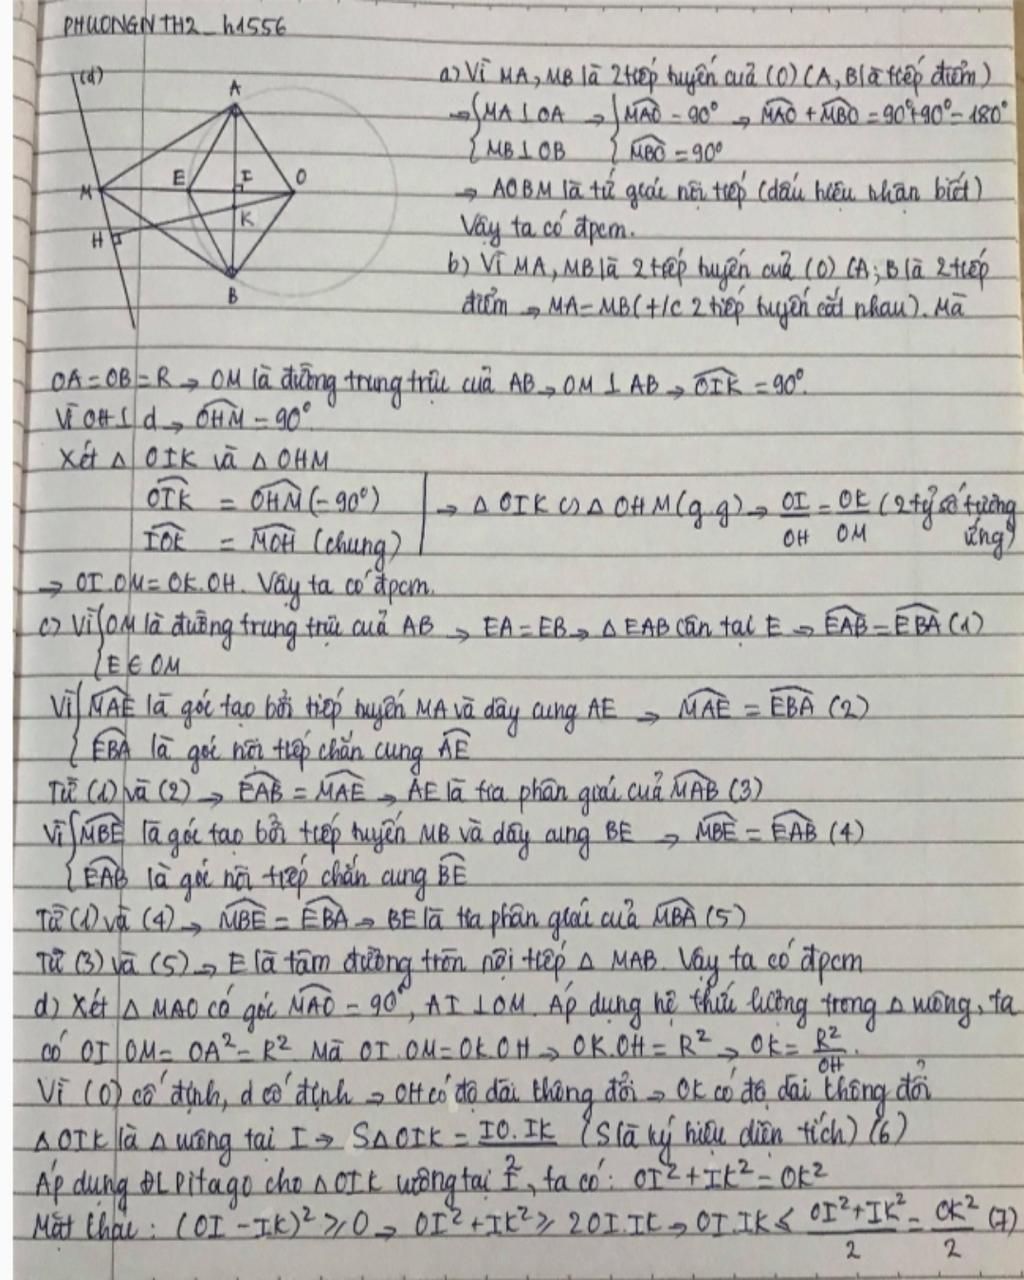 PHUONGNTH2_h1556
(d)
A
M
E
I
O
K
H
B
a) Vì MA, MB là 2 tiếp tuyến cuả (O) (A, B là tiếp điểm)
→ { MA ⊥ OA → { \widehat{MAO} = 90° → \widehat{MAO} + \widehat{MBO} = 90°+90° = 180°
{ MB ⊥ OB { \widehat{MBO} = 90°
→ AOBM là tứ giác nội tiếp (dấu hiệu nhận biết)
Vậy ta có đpcm.
b) Vì MA, MB là 2 tiếp tuyến cuả (O) (A; B là 2 tiếp
điểm → MA = MB (t/c 2 tiếp tuyến cắt nhau). Mà
OA = OB = R → OM là đường trung trực cuả AB → OM ⊥ AB → \widehat{OIK} = 90°.
Vì OH ⊥ d → \widehat{OHM} = 90°.
Xét △ OIK và △ OHM
\widehat{OIK} = \widehat{OHM} (= 90°)
\widehat{IOK} = \widehat{MOH} (chung)
→ △ OIK ∽ △ OHM (g.g) → OI/OH = OK/OM (2 tỷ số tương ứng)
→ OI.OM = OK.OH. Vậy ta có đpcm.
c) Vì { OM là đường trung trực cuả AB → EA = EB → △ EAB cân tại E → \widehat{EAB} = \widehat{EBA} (1)
{ E ∈ OM
Vì { \widehat{MAE} là góc tạo bởi tiếp tuyến MA và dây cung AE → \widehat{MAE} = \widehat{EBA} (2)
{ \widehat{EBA} là góc nội tiếp chắn cung \widehat{AE}
Từ (1) và (2) → \widehat{EAB} = \widehat{MAE} → AE là tia phân giác cuả \widehat{MAB} (3)
Vì { \widehat{MBE} là góc tạo bởi tiếp tuyến MB và dây cung BE → \widehat{MBE} = \widehat{EAB} (4)
{ \widehat{EAB} là góc nội tiếp chắn cung \widehat{BE}
Từ (1) và (4) → \widehat{MBE} = \widehat{EBA} → BE là tia phân giác cuả \widehat{MBA} (5)
Từ (3) và (5) → E là tâm đường tròn nội tiếp △ MAB. Vậy ta có đpcm
d) Xét △ MAO có góc \widehat{MAO} = 90°, AI ⊥ OM. Áp dụng hệ thức lượng trong △ vuông, ta
có OI.OM = OA² = R² Mà OI.OM = OK.OH → OK.OH = R² → OK = R²/OH.
Vì (O) cố định, d cố định → OH có độ dài không đổi → OK có độ dài không đổi
△ OIK là △ vuông tại I → S△OIK = IO.IK/2 (S là ký hiệu diện tích) (6)
Áp dụng ĐL Pitago cho △ OIK vuông tại I, ta có: OI² + IK² = OK²
Mặt khác: (OI - IK)² ⩾ 0 → OI² + IK² ⩾ 2OI.IK → OI.IK ⩽ OI² + IK²/2 = OK²/2 (7)